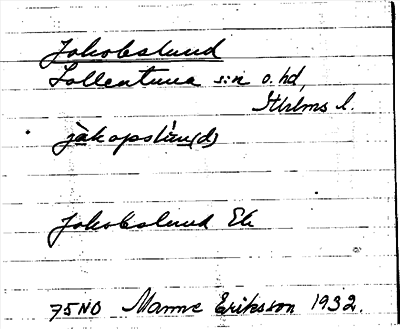 Jakobslund
Sollentuna s:n o. hd,
Sthlms l.
jàkopslùn(d)
Jakobslund Ek
75NO Manne Eriksson 1932.